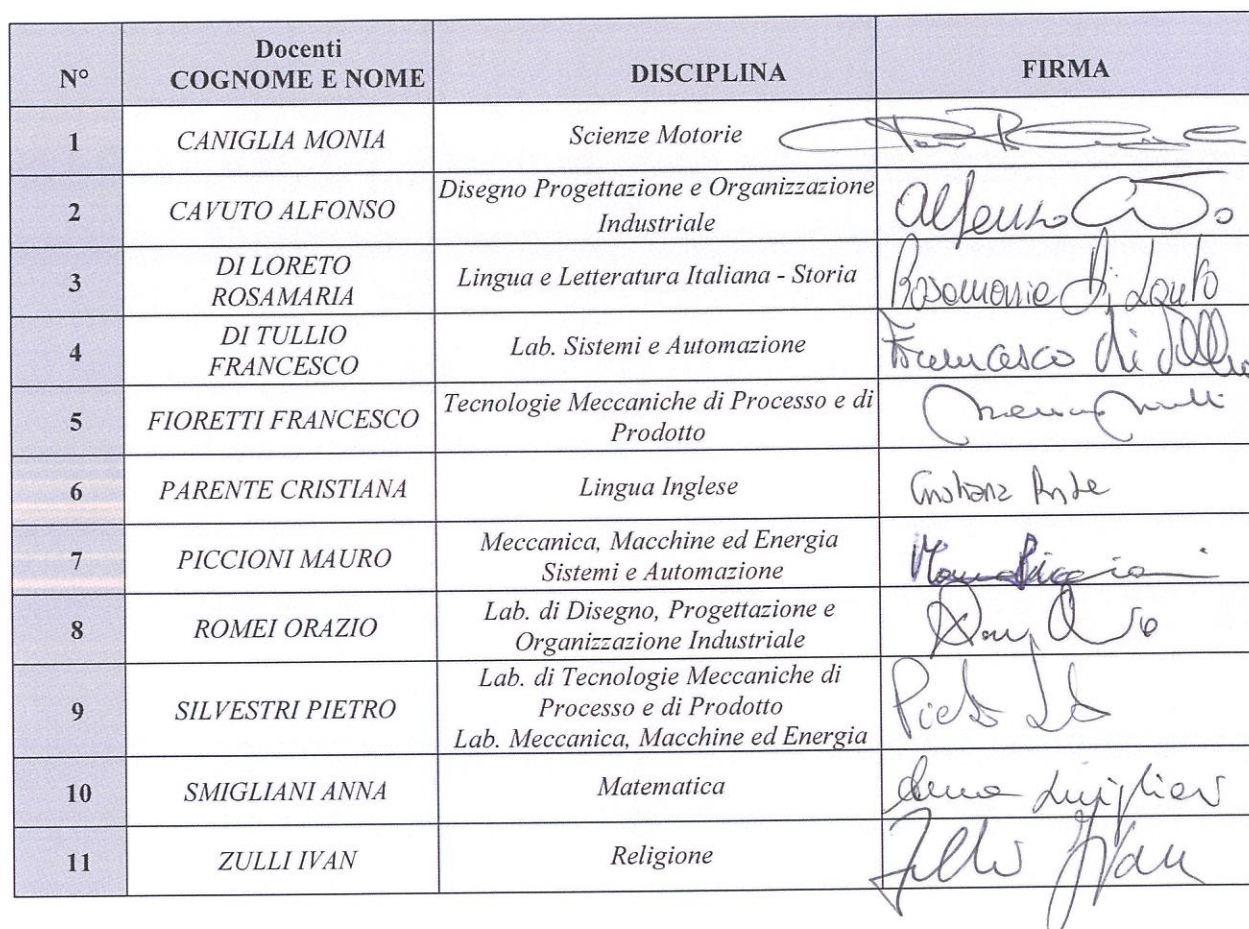 N°
Docenti
COGNOME E NOME
DISCIPLINA
FIRMA
1
CANIGLIA MONIA
Scienze Motorie
2
CAVUTO ALFONSO
Disegno Progettazione e Organizzazione
Industriale
Alfonso
3
DI LORETO
ROSAMARIA
Lingua e Letteratura Italiana - Storia
Rosamaria Di Loreto
4
DI TULLIO
FRANCESCO
Lab. Sistemi e Automazione
Francesco Di Tullio
5
FIORETTI FRANCESCO
Tecnologie Meccaniche di Processo e di
Prodotto
6
PARENTE CRISTIANA
Lingua Inglese
Cristiana Parente
7
PICCIONI MAURO
Meccanica, Macchine ed Energia
Sistemi e Automazione
Mauro Piccioni
8
ROMEI ORAZIO
Lab. di Disegno, Progettazione e
Organizzazione Industriale
9
SILVESTRI PIETRO
Lab. di Tecnologie Meccaniche di
Processo e di Prodotto
Lab. Meccanica, Macchine ed Energia
Pietro
10
SMIGLIANI ANNA
Matematica
Anna Smigliani
11
ZULLI IVAN
Religione
Zulli Ivan